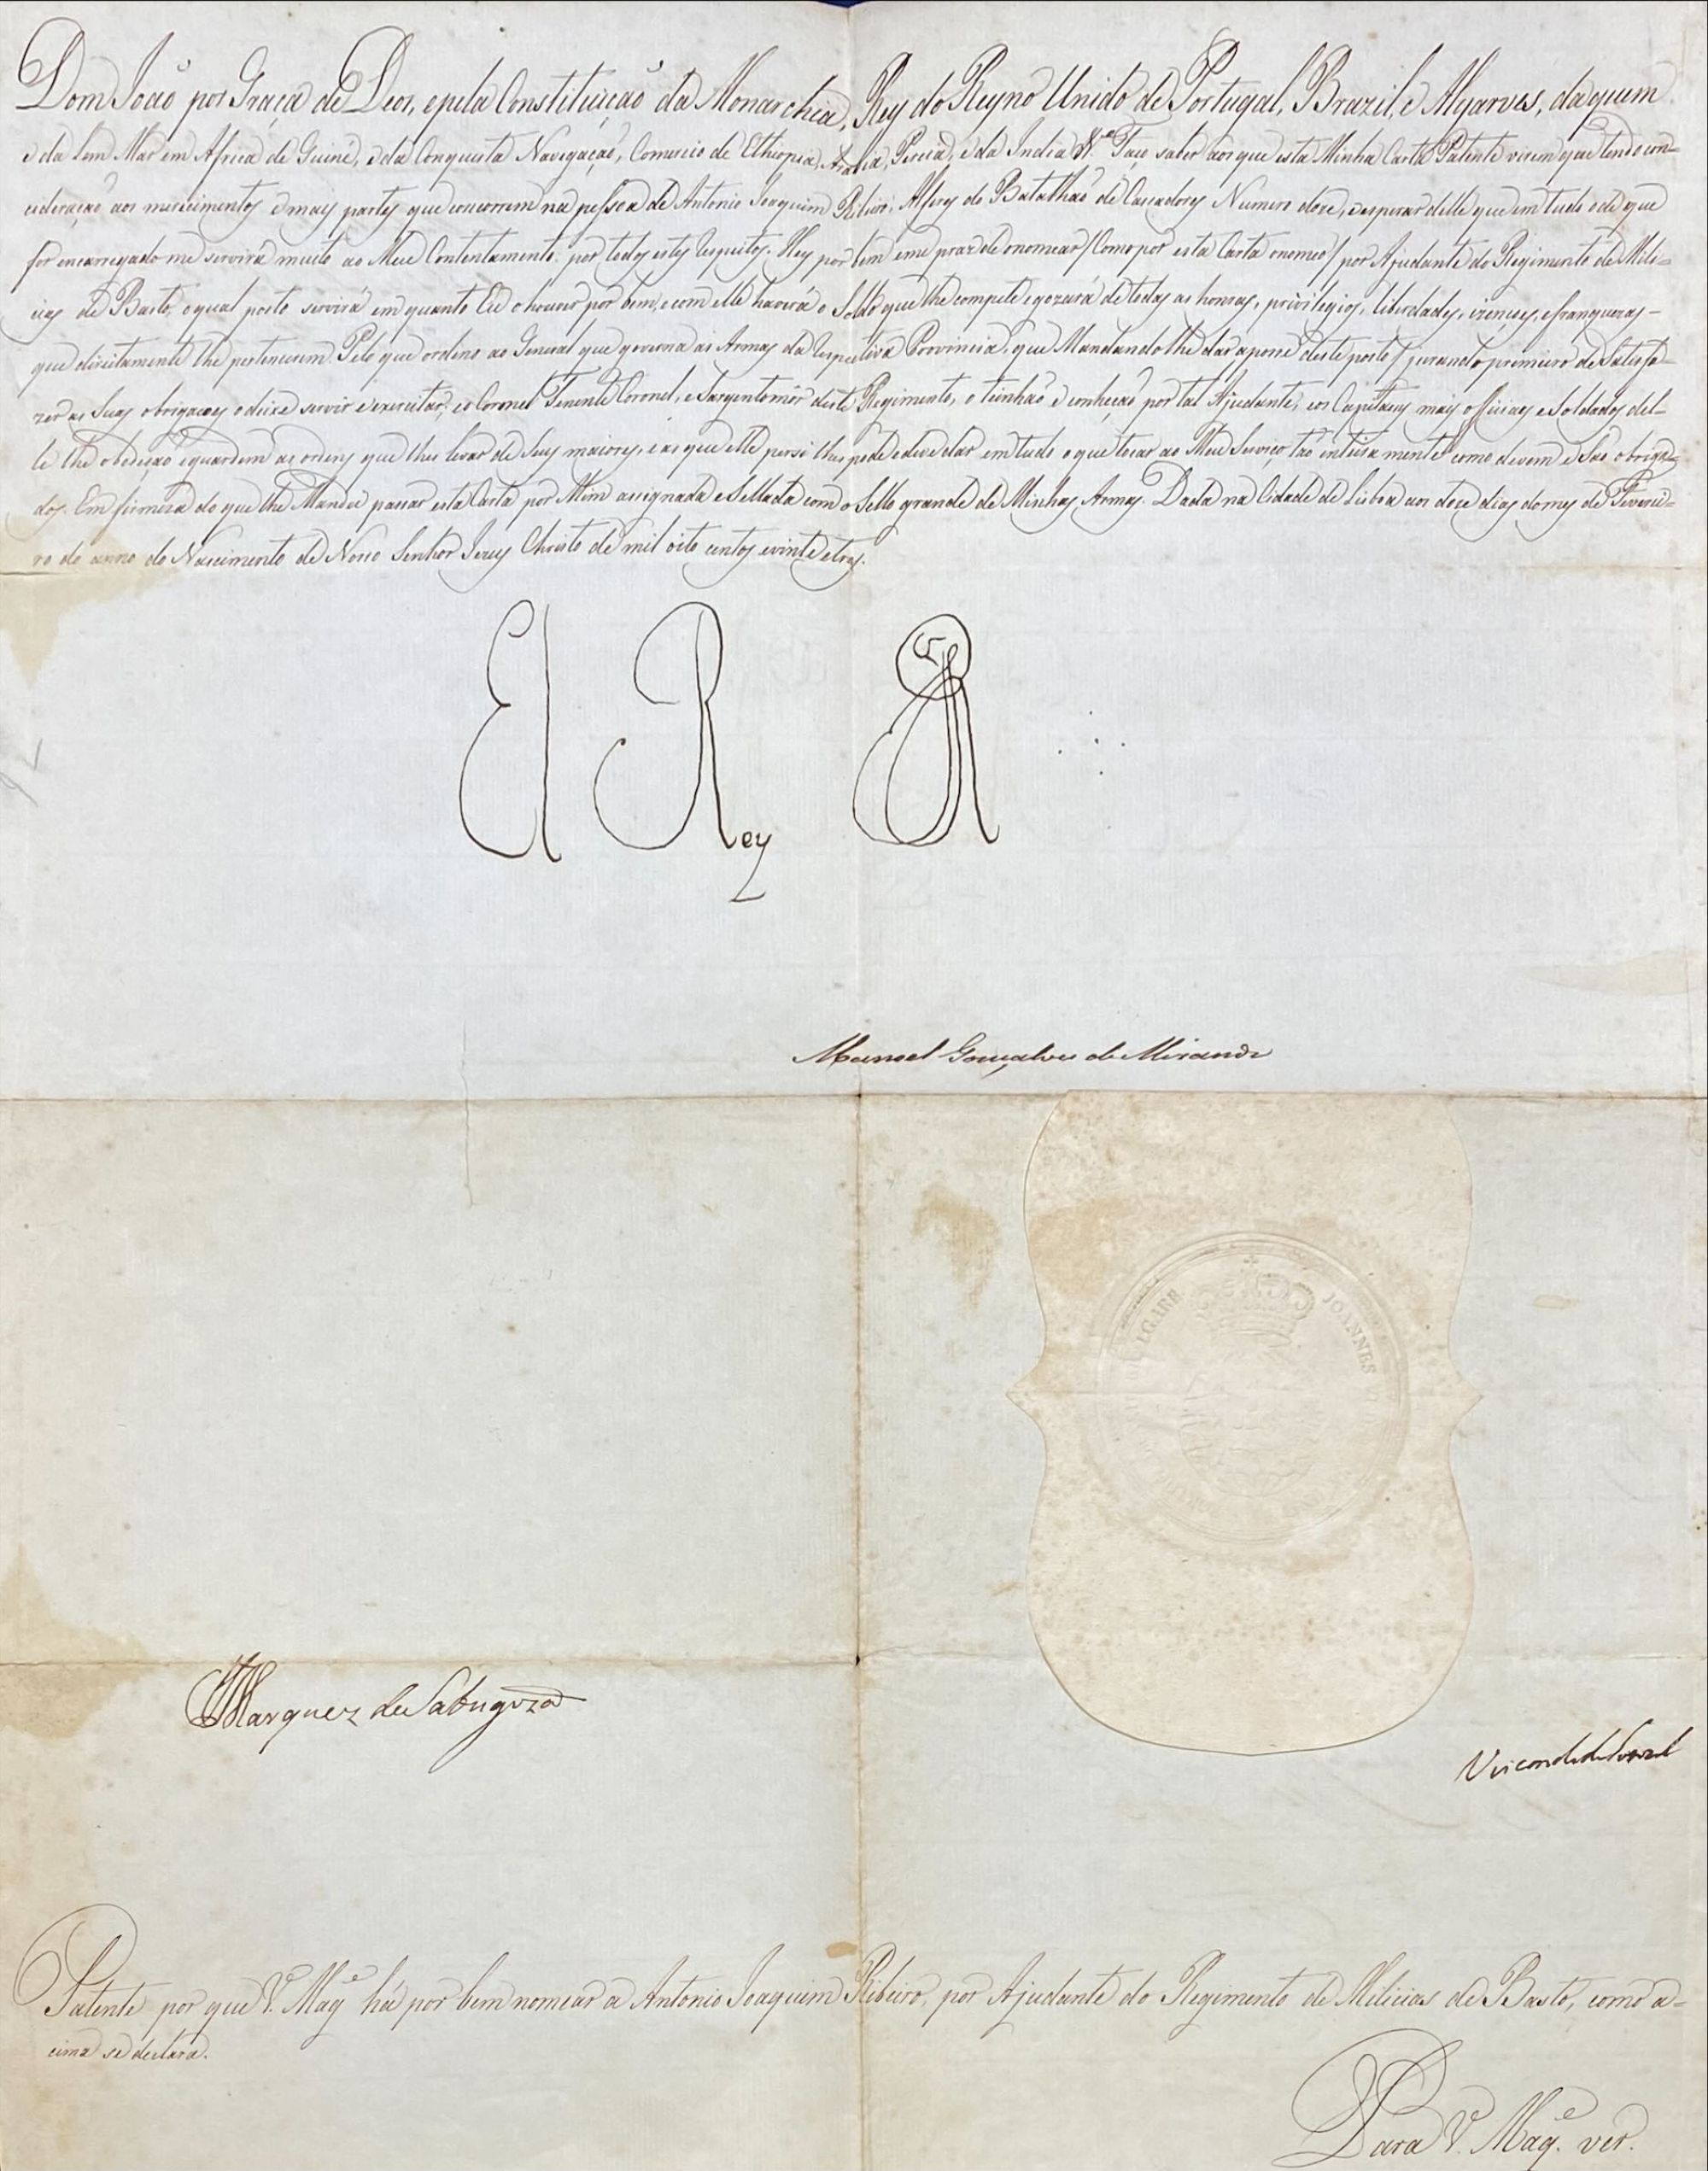 Dom João por Graça de Deos, e pela Constituição da Monarchia, Rey do Reyno Unido de Portugal, Brazil, e Algarves, daquem
e da lem Mar em Africa de Guiné, e da Conquista Navegação, Comercio de Ethiopia, Arabia, Percia, e da India &.ª Faço saber aos que esta Minha Carta Patente virem que tendo con-
cideração aos merecimentos e mays partes que concorrem na pessoa de Antonio Joaquim Ribeiro, Alferes do Batalhão de Casadores Numero doze, e esperar delle que em tudo o de que
for encarregado me servirá muito ao Meu Contentamento: por todos estes respeitos: Hey por bem e me praz de o nomear (Como por esta Carta o nomeo) por Ajudante do Regimento de Mili-
cias de Basto, o qual posto servirá em quanto Eu o houver por bem, e com elle haverá o Soldo que lhe compete e gozará de todas as honras, privilegios, liberdades, izenções, e franquezas
que direitamente lhe pertencerem. Pelo que ordeno ao General que governa as Armas da respectiva Provincia, que Mandandolhe dar a posse deste posto (jurando primeiro de Satisfa-
zer as Suas obrigacoes) o deixe servir e exercitar; e o Coronel Tenente Coronel, e Sargentomór deste Regimento, o tenhão e conheção por tal Ajudante, e os Capitães mays officiaes e Soldados del-
le lhe obedeção e guardem as ordens que lhes levar de Seus maiores, e as que elle per si lhes pode e deve dar em tudo o que tocar ao Meu Serviço tão inteira mente como devem e São obriga-
dos. Em firmeza do que lhe Mandei passar esta Carta por Mim assignada e Sellada com o Sello grande de Minhas Armas. Dada na Cidade de Lisboa aos doze dias do mes de Feverei-
ro do anno do Nascimento de Nosso Senhor Jesus Christo de mil oito centos e vinte e tres.
El Rey
Manoel Gonçalves de Miranda
JOANNES VI
ALGARB
Marquez de Sabugoza
Visconde de
Patente por que V. Mag.e há por bem nomear a Antonio Joaquim Ribeiro, por Ajudante do Regimento de Milicias de Basto, como a-
cima se declara.
Para V. Mag.e ver.